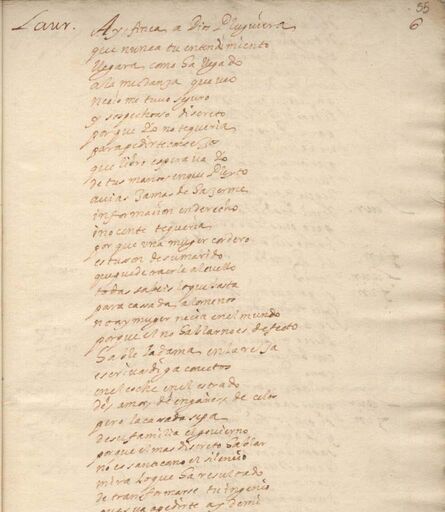 55
6
Laur. Ay finea a Dios Pluguiera
que nunca tu entendimiento
llegara como ha llegado
a la mudanza que veo
necio me tuvo seguro
y sospechoso discreto
porque yo no te queria
para pedirte consejo
que libro esperava yo
de tus manos en que Pleyto
avias Jamas de hazerme
informacion en derecho
inocente te queria
porque una muger cordero
es tuson de su marido
que puede traerle al cuello
todas sabeis lo que basta
para casada alomenos
no ay muger necia en el mundo
porque el no hablar no es defecto
hable la dama en la rexa
escriva diga concetos
en el coche en el estrado
de amor de engaños de celos
pero la casada sepa
de su familia el govierno
porque el mas discreto hablar
no es sancto como el silencio
mira lo que ha resultado
de transformarse tu ingenio
pues va a pedirte ay de mi